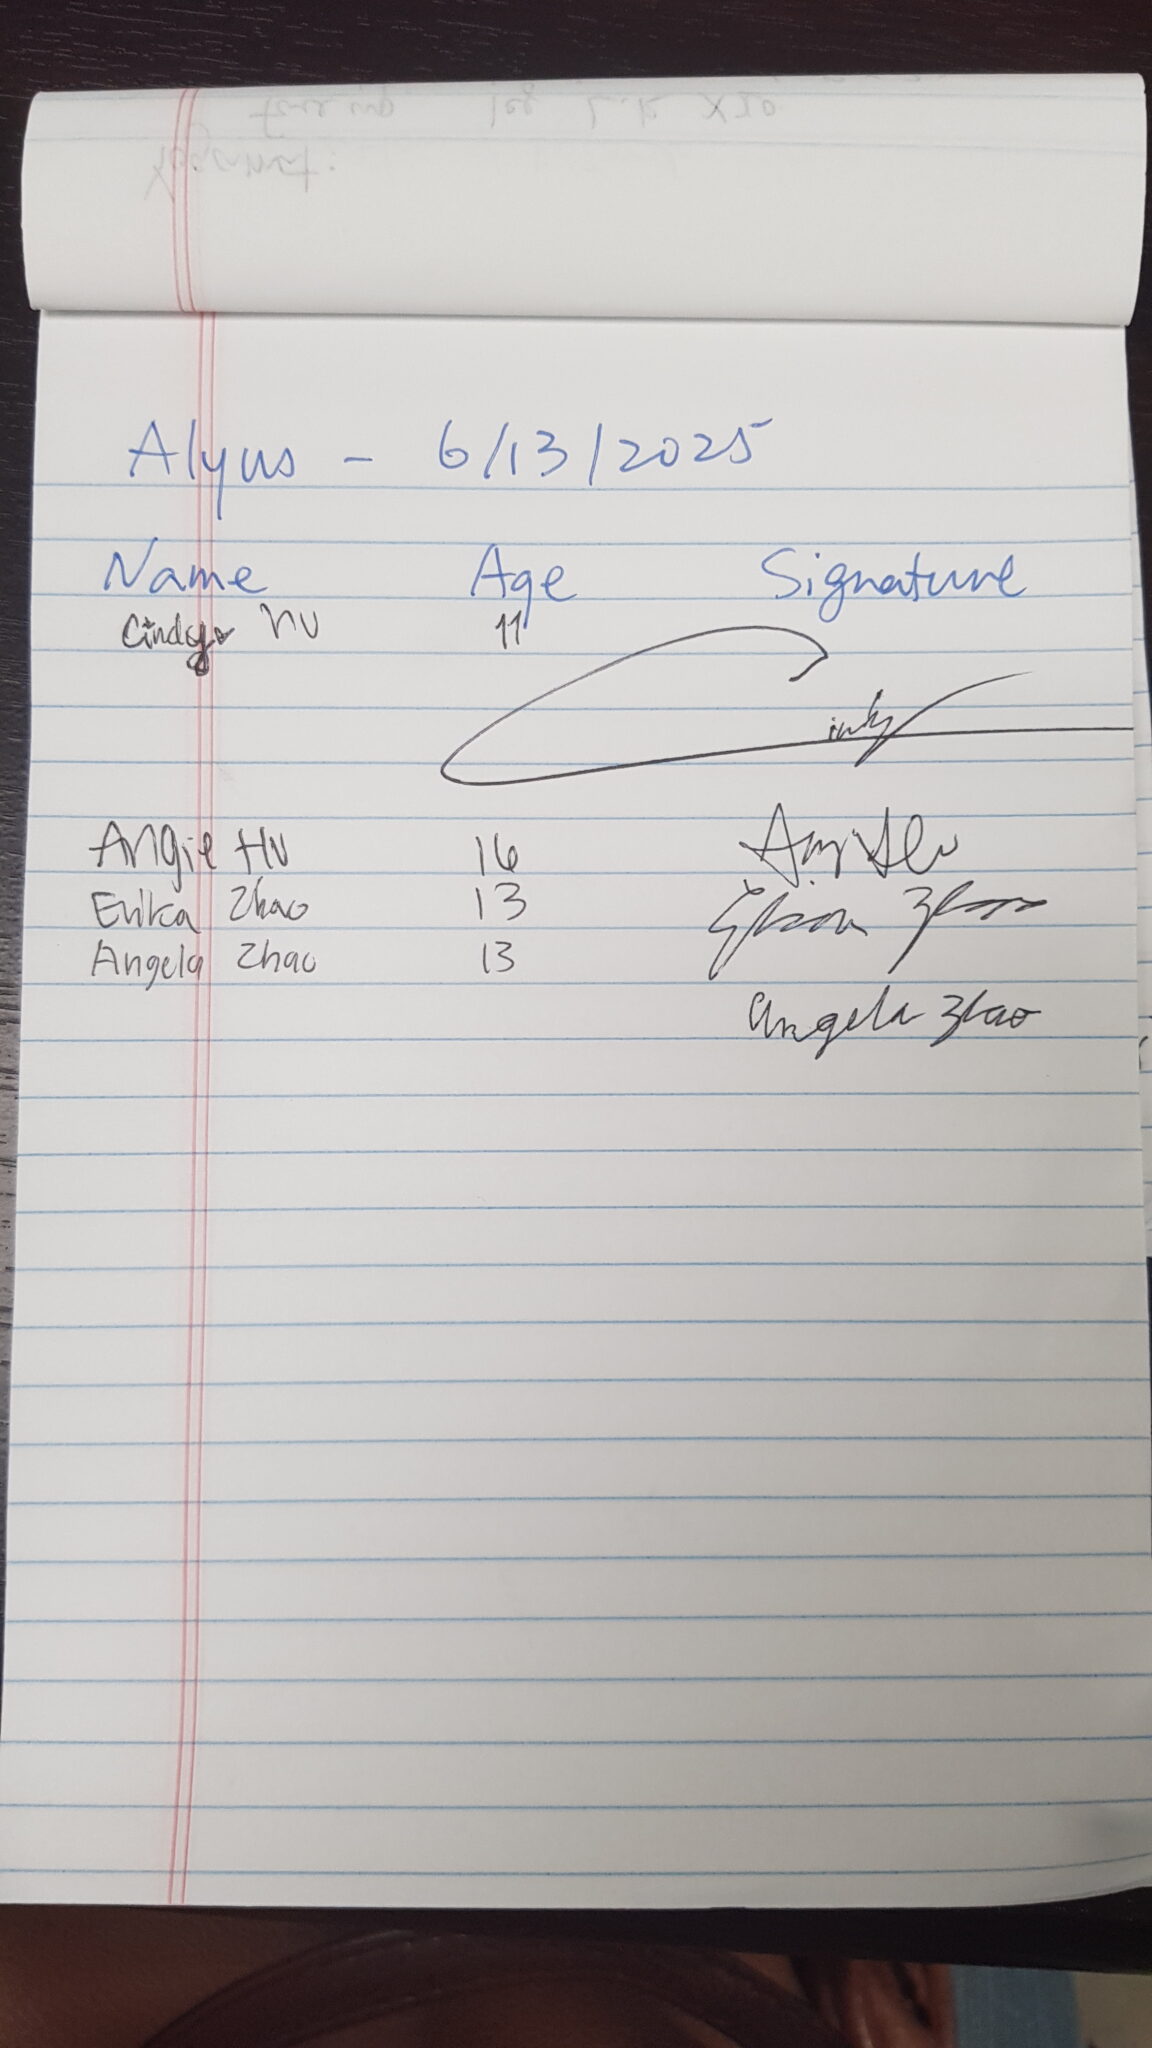 Alyus - 6/13/2025
Name Age Signature
Cindy Hu 11
Cindy
Angie Hu 16
Erika Zhao 13
Angela Zhao 13
Angela Zhao